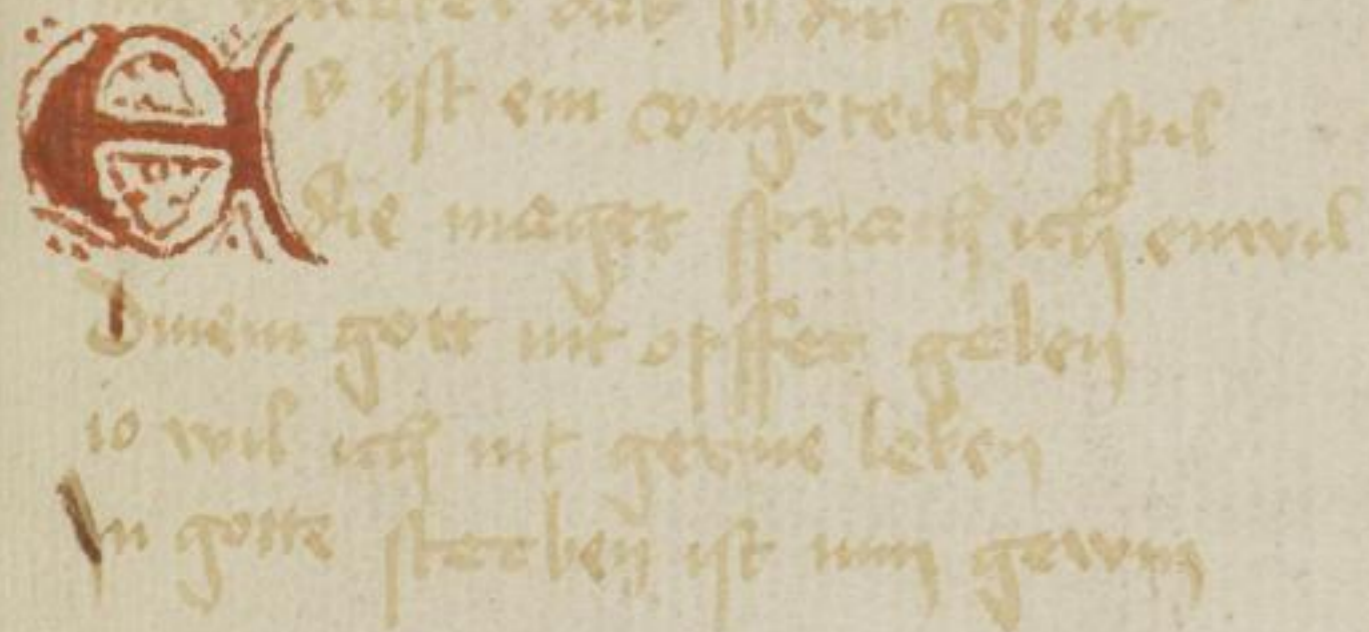 das sy dir geseit
Es ist ein vngeteiltes spil
die maget sprach ich enwil
Dinem gott nit opffer geben
io wil ich nit gerne leben
In gotte sterben ist min gewin